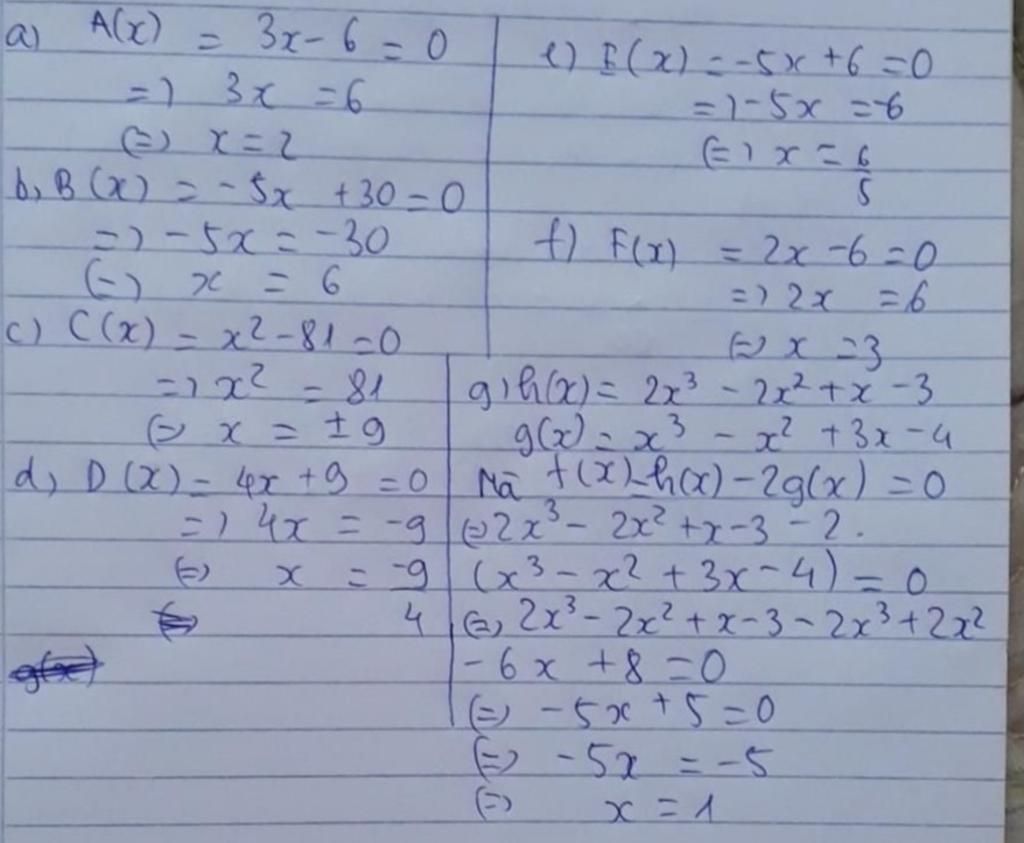 a) A(x) = 3x - 6 = 0
=) 3x = 6
(=) x = 2
b, B(x) = -5x + 30 = 0
=) -5x = -30
(=) x = 6
c) C(x) = x² - 81 = 0
=) x² = 81
(=) x = ± 9
d, D(x) = 4x + 9 = 0
=) 4x = -9
(=) x = -9
4
e) E(x) = -5x + 6 = 0
=) -5x = -6
(=) x = 6
5
f) F(x) = 2x - 6 = 0
=) 2x = 6
(=) x = 3
g) h(x) = 2x³ - 2x² + x - 3
g(x) = x³ - x² + 3x - 4
Mà f(x) = h(x) - 2g(x) = 0
(=) 2x³ - 2x² + x - 3 - 2.
(x³ - x² + 3x - 4) = 0
(=) 2x³ - 2x² + x - 3 - 2x³ + 2x²
- 6x + 8 = 0
(=) -5x + 5 = 0
(=) -5x = -5
(=) x = 1